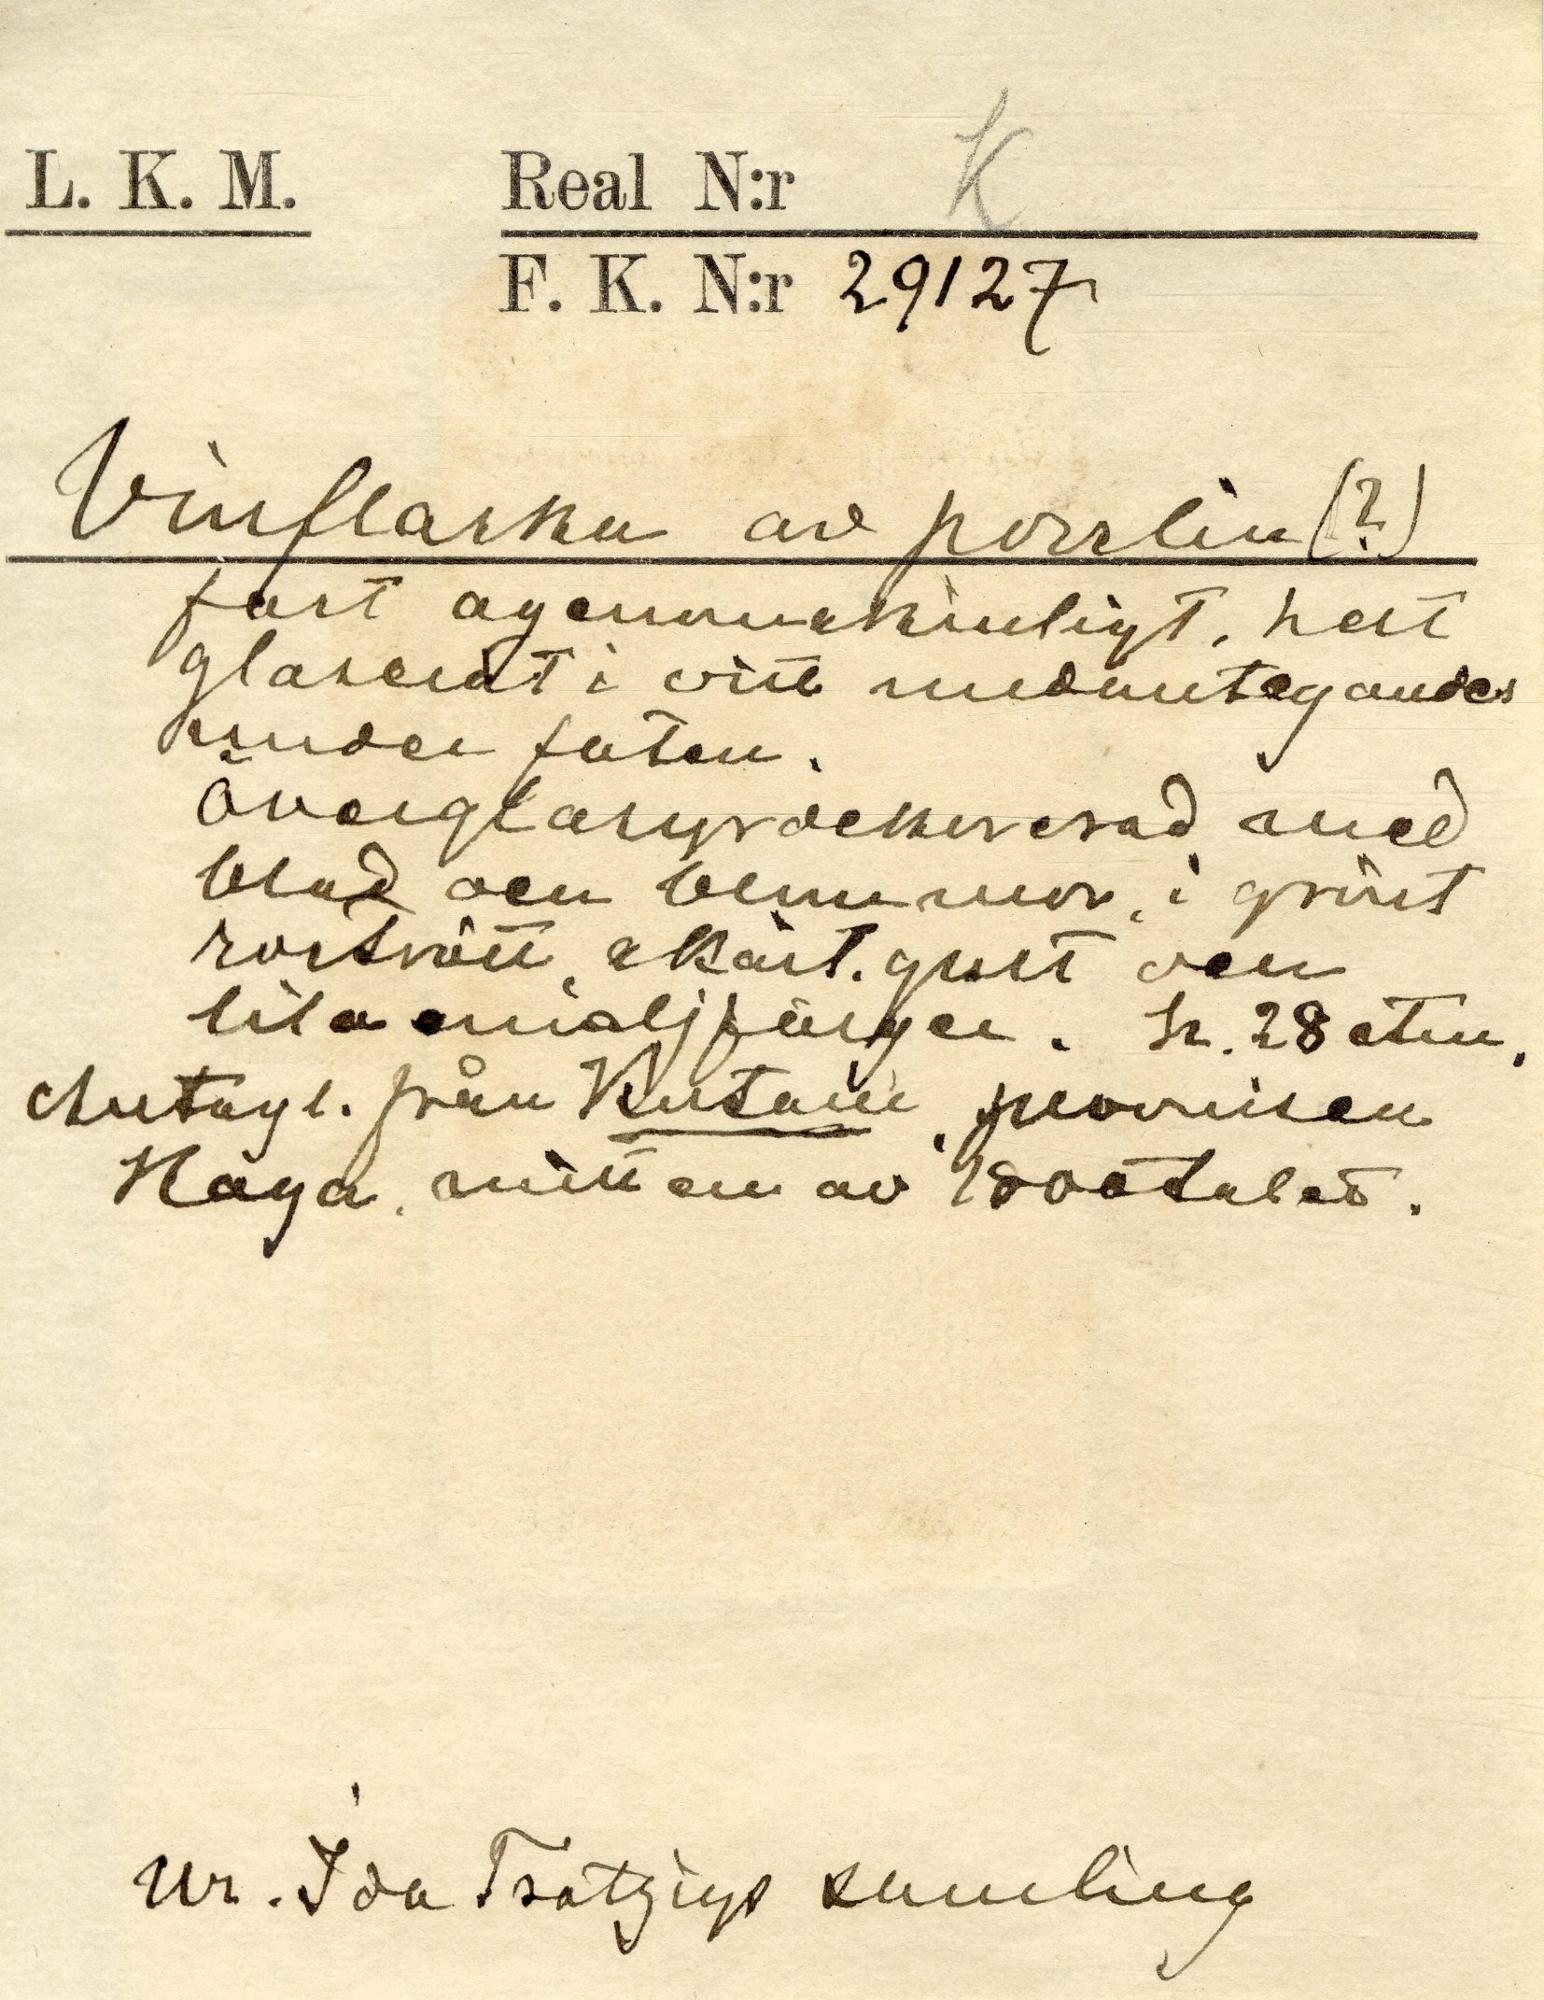 L. K. M.
Real N:r K
F. K. N:r 29127
Vinflaska av porslin (?)
fast ogenomskinligt, helt
glaserat i vitt undantagandes
under foten.
Överglasyrdekorerad med
blad och blommor, i grönt
rostrött, skärt, gult och
lila emaljfärger. H. 28 ctm.
Antagl. från Kutani, provinsen
Kaga, mitten av 1800talet.
Ur. Ida Trotzigs samling